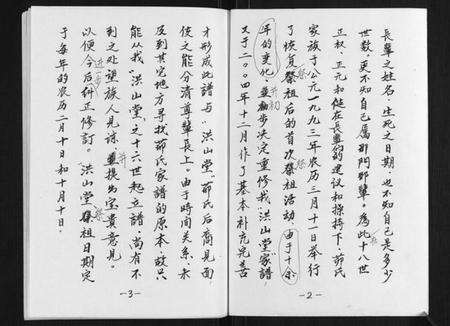 長辈之姓名、生死之日期、也不知自己是多少
世数。更不知自己属那門那輩。為此十八世
正权、正元和健在長輩的建议和操持下,茆氏
家族于公元一九九三年农历三月十一日举行
了恢复祭祖后的首次祭祖活动 由于十余
年的变化 並初步决定重修我"洪山堂"家譜
又于二00四年十二月作了基本补充完善
-2-
才形成此譜与"洪山堂"茆氏后裔見面
使之能分清尊輩長上。由于時间关系,未
及到其它地方寻找茆氏家譜的原本,故只
能从我"洪山堂"之十六世起立譜,尚有不
到之处望族人見諒,並提出宝貴意見。
以便今后糾正修訂。"洪山堂"祭祖日期定
于每年的农历二月十日和十月十日。
-3-